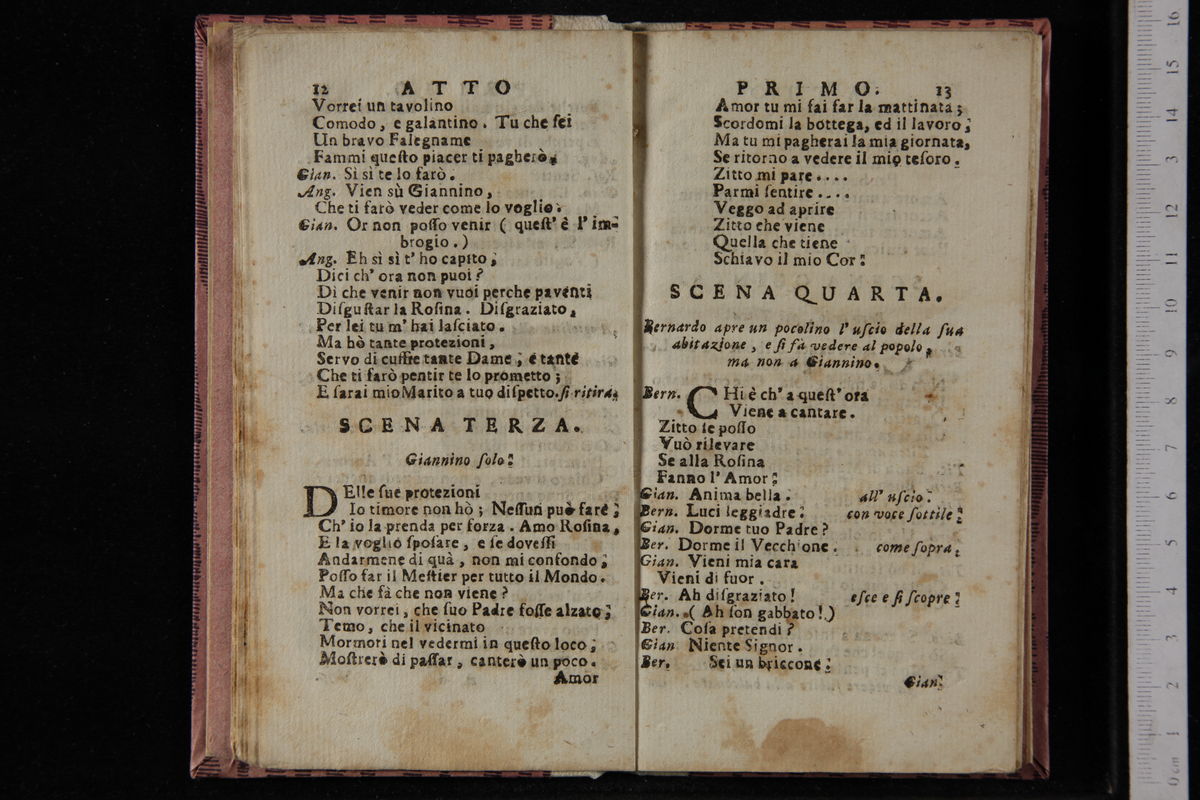 12 ATTO
Vorrei un tavolino
Comodo, e galantino. Tu che ſei
Un bravo Falegname
Fammi queſto piacer ti pagherò.
Gian. Sì sì te lo farò.
Ang. Vien sù Giannino,
Che ti farò veder come lo voglio.
Gian. Or non poſſo venir ( queſt' è l' im-
brogio.)
Ang. Eh sì sì t' ho capito;
Dici ch' ora non puoi?
Di che venir non vuoi perche paventi
Diſguſtar la Roſina. Diſgraziato,
Per lei tu m' hai laſciato.
Ma hò tante protezioni,
Servo di cuffie tante Dame; e tante
Che ti farò pentir te lo prometto;
E ſarai mio Marito a tuo diſpetto. ſi ritira.
SCENA TERZA.
Giannino ſolo:
DElle ſue protezioni
Io timore non hò; Neſſun può fare;
Ch' io la prenda per forza. Amo Roſina,
E la voglio ſpoſare, e ſe doveſſi
Andarmene di quà, non mi confondo;
Poſſo far il Meſtier per tutto il Mondo.
Ma che fà che non viene?
Non vorrei, che ſuo Padre foſſe alzato;
Temo, che il vicinato
Mormori nel vedermi in queſto loco;
Moſtrerò di paſſar, canterò un poco.
Amor
PRIMO. 13
Amor tu mi fai far la mattinata;
Scordomi la bottega, ed il lavoro;
Ma tu mi pagherai la mia giornata,
Se ritorno a vedere il mio teſoro.
Zitto mi pare....
Parmi ſentire....
Veggo ad aprire
Zitto che viene
Quella che tiene
Schiavo il mio Cor:
SCENA QUARTA.
Bernardo apre un pocolino l' uſcio della ſua
abitazione, e ſi fà vedere al popolo,
ma non a Giannino.
Bern. CHi è ch' a queſt' ora
Viene a cantare.
Zitto ſe poſſo
Vuò rilevare
Se alla Roſina
Fanno l' Amor;
Gian. Anima bella. all' uſcio:
Bern. Luci leggiadre: con voce ſottile:
Gian. Dorme tuo Padre?
Ber. Dorme il Vecchione. come ſopra.
Gian. Vieni mia cara
Vieni di fuor.
Ber. Ah diſgraziato! eſce e ſi ſcopre:
Gian. ( Ah ſon gabbato!)
Ber. Coſa pretendi?
Gian Niente Signor.
Ber. Sei un briccone:
Gian:
0 cm 1 2 3 4 5 6 7 8 9 10 11 12 13 14 15 16